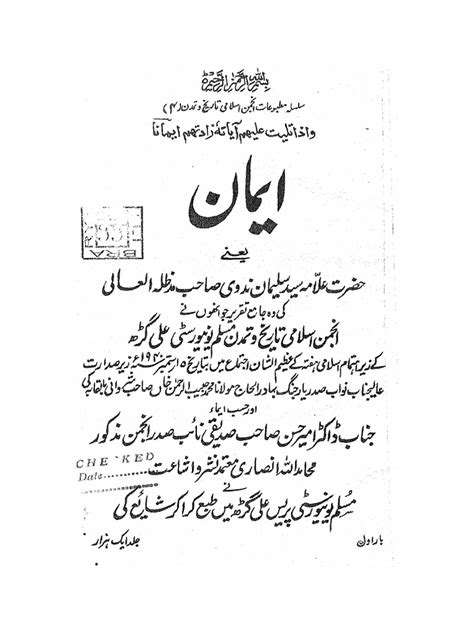 بسم اللہ الرحمن الرحیم
سلسلہ مطبوعات انجمن اسلامی تاریخ و تمدن (۴)
واذا تلیت علیھم آیاتہ زادتھم ایمانا
ایمان
یعنے
حضرت علامہ سید سلیمان ندوی صاحب مدظلہ العالی
کی وہ جامع تقریر جو انھوں نے
انجمن اسلامی تاریخ و تمدن مسلم یونیورسٹی علی گڑھ
کے زیر اہتمام اسلامی ہفتہ کے عظیم الشان اجتماع میں بتاریخ ۱۵ دسمبر ۱۹۴۰ء زیر صدارت
عالیجناب نواب صدر یار جنگ بہادر الحاج مولانا محمد حبیب الرحمن خاں صاحب شروانی بالقابہ کی
اور حسب ایماء
جناب ڈاکٹر امیر حسن صاحب صدیقی نائب صدر انجمن مذکور
CHECKED
Date
محامد اللہ انصاری معتمد نشر و اشاعت
نے
مسلم یونیورسٹی پریس علی گڑھ میں طبع کرا کر شایع کی
بار اول
جلد ایک ہزار